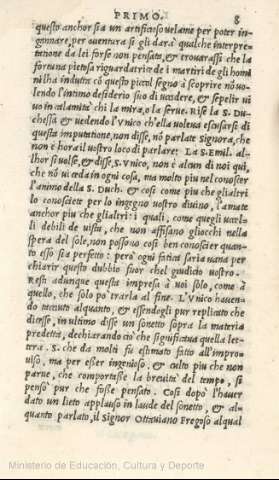 PRIMO. 8
questo anchor sia un artificioso uelame per poter in-
gannare, per auentura si gli darà qualche interpre-
tatione da lei forse non pensata, & trouarassi che la
fortuna pietosa riguardatrice de i martiri de gli homi
ni lha indutta cō questo piccol segno à scoprire nō uo-
lendo l'intimo desiderio suo di uccedere, & sepelir ui
uo in calamità chi la mira, o la serue. Rise la S. Du-
chessa & uedendo l'Vnico ch'ella uolena escusarsi di
questa imputatione, non disse, nō parlate Signora, che
non è hora il uostro loco di parlare: La S. Emil. al-
lhor si uolse, & disse, S. Vnico, non è alcun di noi quì,
che nō ui ceda in ogni cosa, ma molto piu nel conoscer
l'animo della S. Duch. & cosi come piu che gli altri
lo conosciete per lo ingegno uostro diuino, l'amate
anchor piu che gli altri: i quali, come quegli uccel-
li debili de uista, che non affisano gliocchi nella
spera del sole, non possono cosi ben conoscier quan-
to esso sia perfetto: però ogni fatica saria uana per
chiarir questo dubbio fuor chel giudicio uostro.
Resti adunque questa impresa à uoi solo, come à
quello, che solo po trarla al fine. L'Vnico hauen-
do tacciuto alquanto, & essendogli pur replicato che
dicesse, in ultimo disse un sonetto sopra la materia
predetta, dechiarando ciò che significaua quella let-
tera .S. che da molti fu estimato fatto all'impro-
uiso, ma per esser ingenioso, & culto piu che non
parue, che comportasse la breuità del tempo, si
pensò pur che fosse pensato. Cosi dopò l'hauer
dato un lieto applauso in laude del sonetto, & al-
quanto parlato, il Signor Ottauiano Fregoso al qual
Ministerio de Educación, Cultura y Deporte